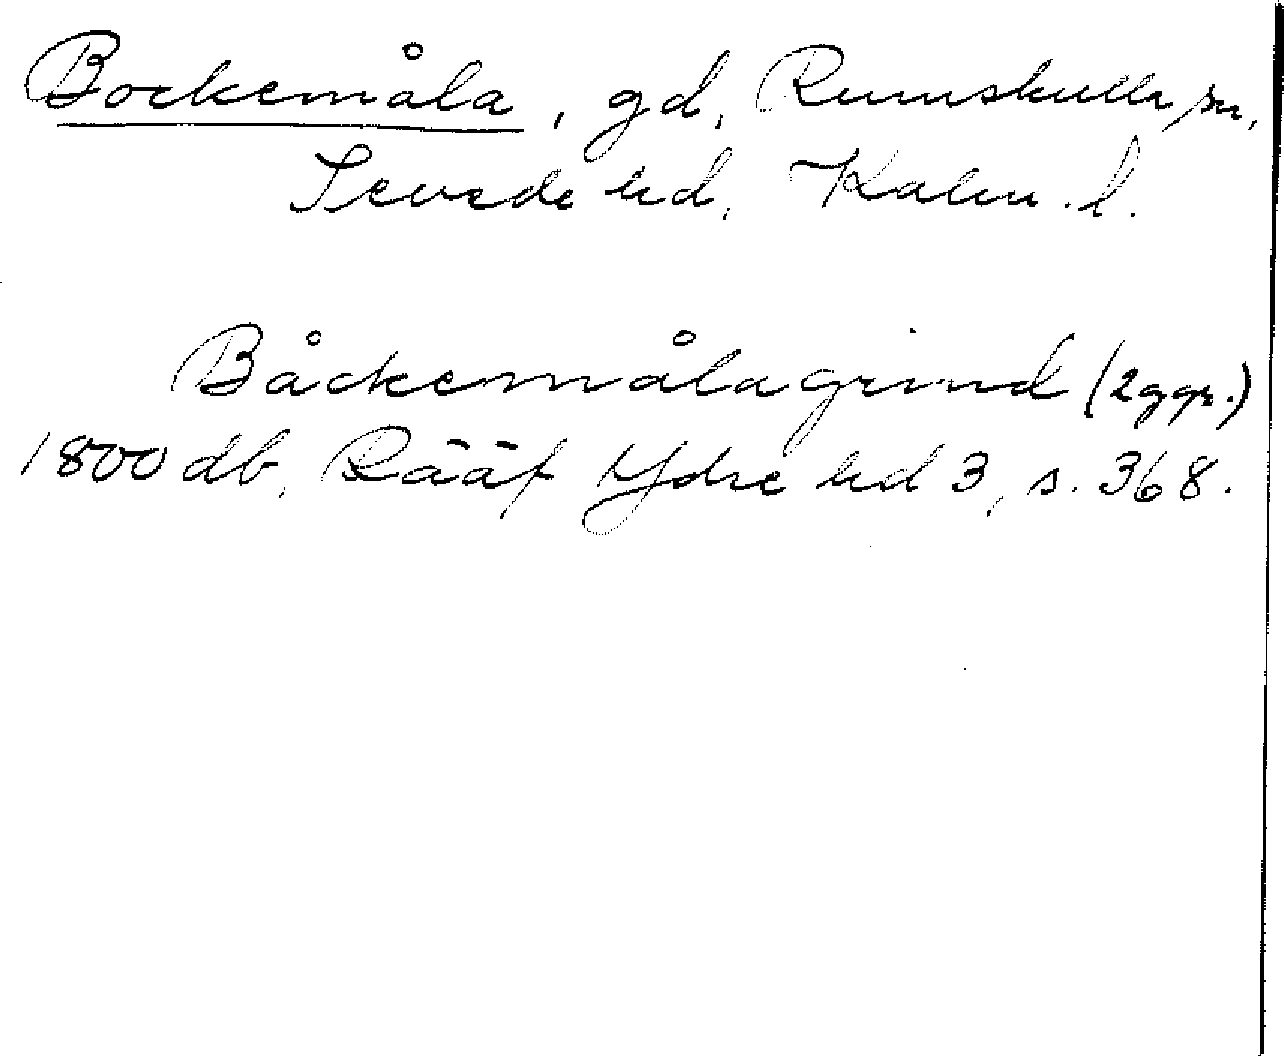 Bockemåla, gd, Rumskulla sn,
Sevede hd, Kalm. l.
Båckemålagrind (2 ggr.)
1800 db, Rääf Ydre hd 3, s. 368.